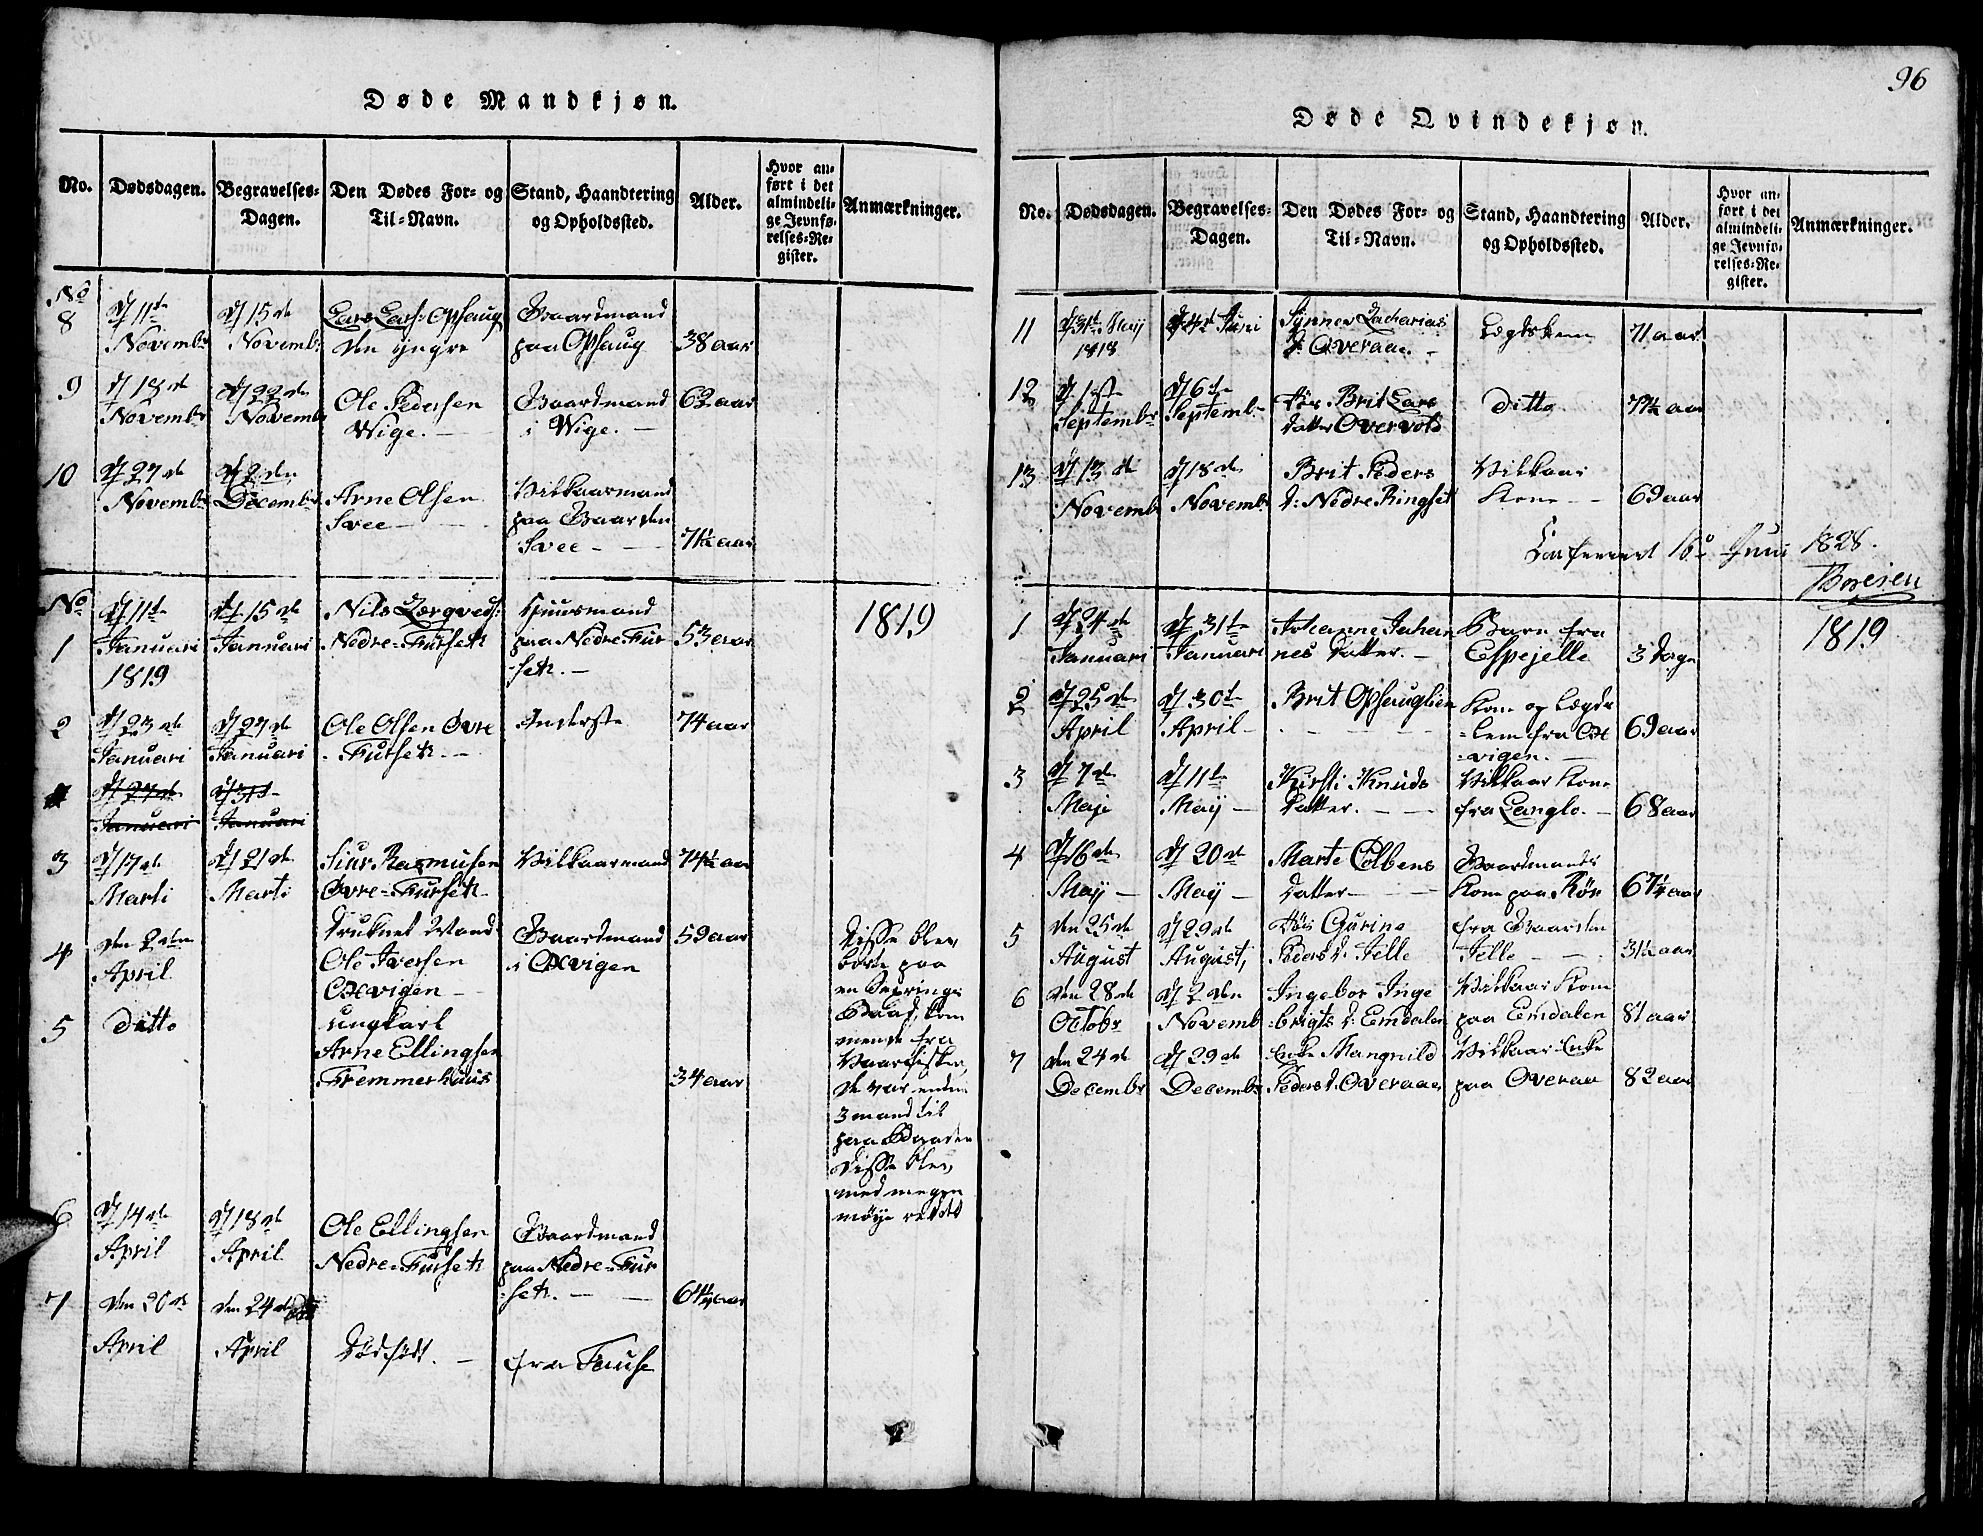 96
Døde Mandkjøn.
No.
Dødsdagen.
Begravelses-
Dagen.
Den Dødes For- og
Til-Navn.
Stand, Haandtering
og Opholdssted.
Alder.
Hvor an-
ført i det
almindeli-
ge Jevnfø-
relses-Re-
gister.
Anmærkninger.
No
8
d 11te
Novembr
d 15de
Novembr
Lars Lars: Opsaug
den yngre
Gaardmand
paa Opsaug
38 aar
9
d 18de
Novembr
d 22de
Novembr
Ole Pedersen
Wige. —
Gaardmand
i Wige. —
62 aar
10
d 27de
Novembr
d 2den
Decembr
Arne Olsen
Svee —
Vilkaarmand
paa Gaarden
Svee — —
71½ aar
No
1
d 11te
Januari
1819
d 15de
Januari
Nils
Nedre-Furseth
Huusmand
paa Nedre Fur
-seth. —
53 aar
1819
2
d 23de
Januari
d 27de
Januari
Ole Olsen Øvre
-Furseth —
Inderste
74 aar
d 27de
Januari
d 31te
Januari
3
d 17de
Marti
d 21de
Marti
Siur Rasmusen
Øvre-Furseth
Vilkaarmand
74½ aar
4
den 2den
April
Druknet Mand
Ole Iversen
Oxvigen —
Gaardmand
i Oxvigen
59 aar
Disse blev
borte paa
en
Baad, kom
mende fra
Vaarfisket,
de var enden
3 mand til
paa Baaden
disse blev
med megen
møye reddet
5
ditto
ungkarl
Arne Ellingsen
Fremmerhuus
34 aar
6
d 14de
April
d 18de
April
Ole Ellingsen
Nedre-Furseth
Gaardmand
paa Nedre-Fur
-seth. —
64¼ aar
7
den 20de
April
den 24de
April
Dødfødt. —
fra Fause
Døde Qvindekjøn.
No.
Dødsdagen.
Begravelses-
Dagen.
Den Dødes For- og
Til-Navn.
Stand, Haandtering
og Opholdssted.
Alder.
Hvor an-
ført i det
almindeli-
ge Jevnfø-
relses-Re-
gister.
Anmærkninger.
11
d 31te Maij
1818
Juni
Synnev Zacharias
D: Overaae. —
Lægdslem
71 aar
12
d 1ste
Septembr
d 6te
Septembr
Brit Lars
datter Overvold
ditto
77½ aar
13
d 13de
Novembr
d 18de
Novembr
Brit Peders
d: Nedre Ringset
Vilkaar
Kone —
69 aar
Conferert 16 Juni 1828.
1
d 24de
Januari
d 31te
Januari
Johanne Johan
nes Datter. —
Barn fra
Espejelle
3 dage
1819
2
d 25de
April
d 30te
April —
Brit Opsauglien
Kone og Lægds
-lem fra Ox
-vigen. —
69 aar
3
d 7de
Maji
d 11te
Maij —
Kirsti Knuds
Datter. —
Vilkaar Kone
fra Langlo. —
68 aar
4
d 16de
Maij —
d 20de
Maij —
Marte Colbens
datter —
Gaardmands
Kone paa Rør
67¼ aar
5
den 25de
August
d 29de
August,
Gurine
Peders d. Jelle
fra Gaarden
Jelle — —
31½ aar
6
den 28de
Octobr
d 2den
Novemb
Ingebor Inge
-brigts d: Emdalen
Vilkaar Kone
paa Emdalen
81 aar
7
den 24de
Decembr
d 29de
Decembr
Enke Mangnild
Peders d. Overaae
Vilkaar Enke
paa Overaa
82 aar